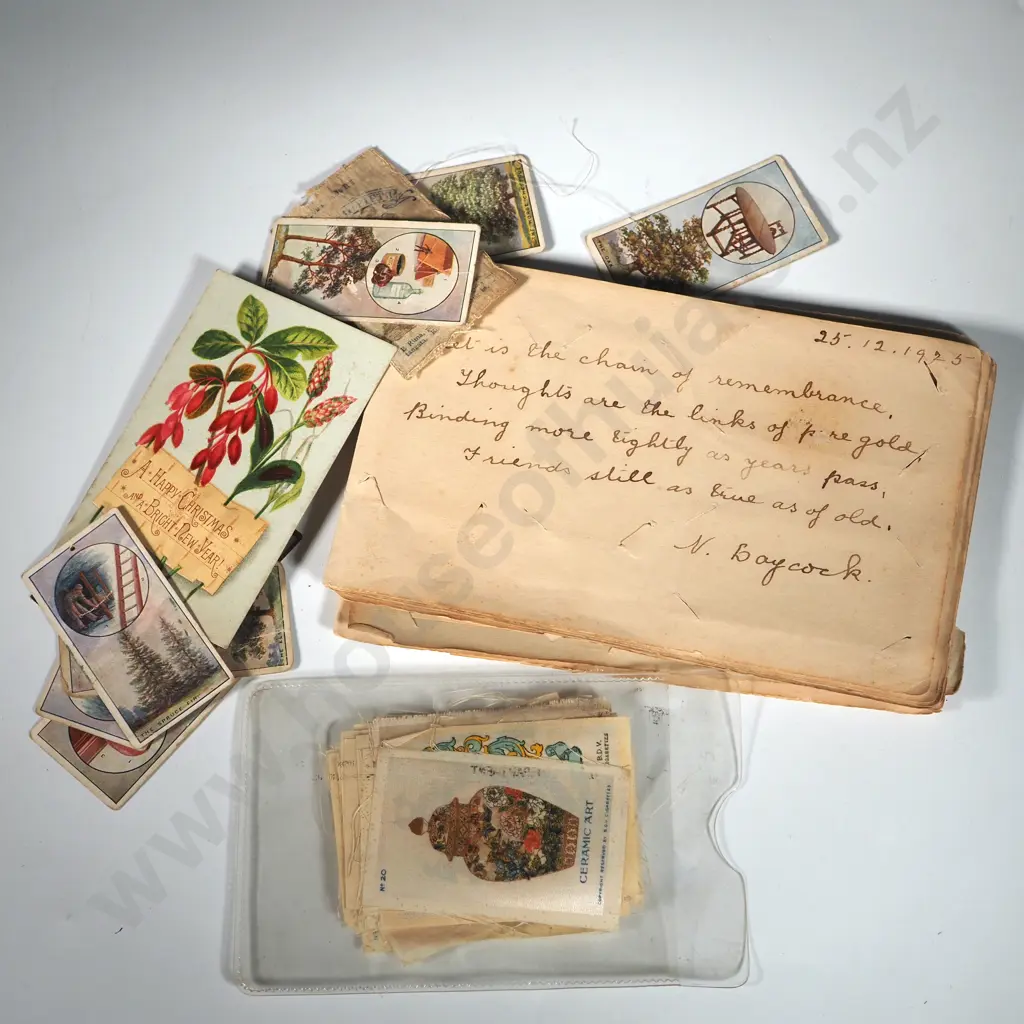 25.12.1925
et is the chain of remembrance,
Thoughts are the links of pure gold,
Binding more tightly as years pass,
Friends still as true as of old.
N. Laycock.
A HAPPY CHRISTMAS
AND A BRIGHT NEW YEAR!
THE SPRUCE
B.D.V.
CIGARETTES
Nº 20
CERAMIC ART
COPYRIGHT REGISTERED BY B.D.V. CIGARETTES
www.houseofhuia.co.nz